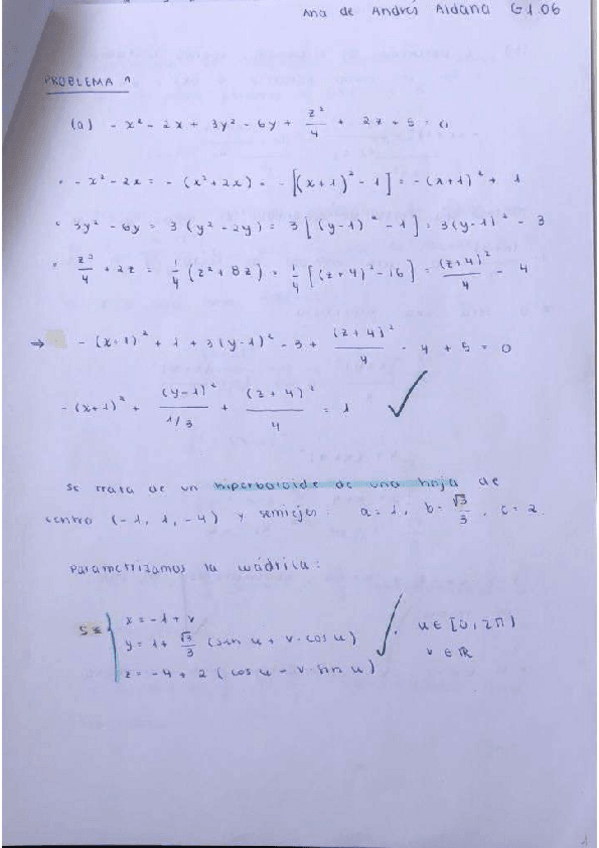 Ana de Andres Aldana G1.06
PROBLEMA 1
(a) - x² - 2x + 3y² - 6y + z²/4 + 2z + 5 = 0
· - x² - 2x = - (x² + 2x) = - [(x+1)² - 1] = - (x+1)² + 1
· 3y² - 6y = 3(y² - 2y) = 3[(y-1)² - 1] = 3(y-1)² - 3
· z²/4 + 2z = 1/4 (z² + 8z) = 1/4 [(z+4)² - 16] = (z+4)²/4 - 4
⇒ - (x+1)² + 1 + 3(y-1)² - 3 + (z+4)²/4 - 4 + 5 = 0
- (x+1)² + (y-1)²/1/3 + (z+4)²/4 = 1 ✓
Se trata de un hiperboloide de una hoja de
centro (-1, 1, -4) y semiejes: a = 1, b = √3/3, c = 2.
Parametrizamos la cuádrica:
S ≡ { x = -1 + v
y = 1 + √3/3 (sin u + v · cos u) ✓ , u ∈ [0, 2π)
z = -4 + 2 (cos u - v · sin u) v ∈ ℝ